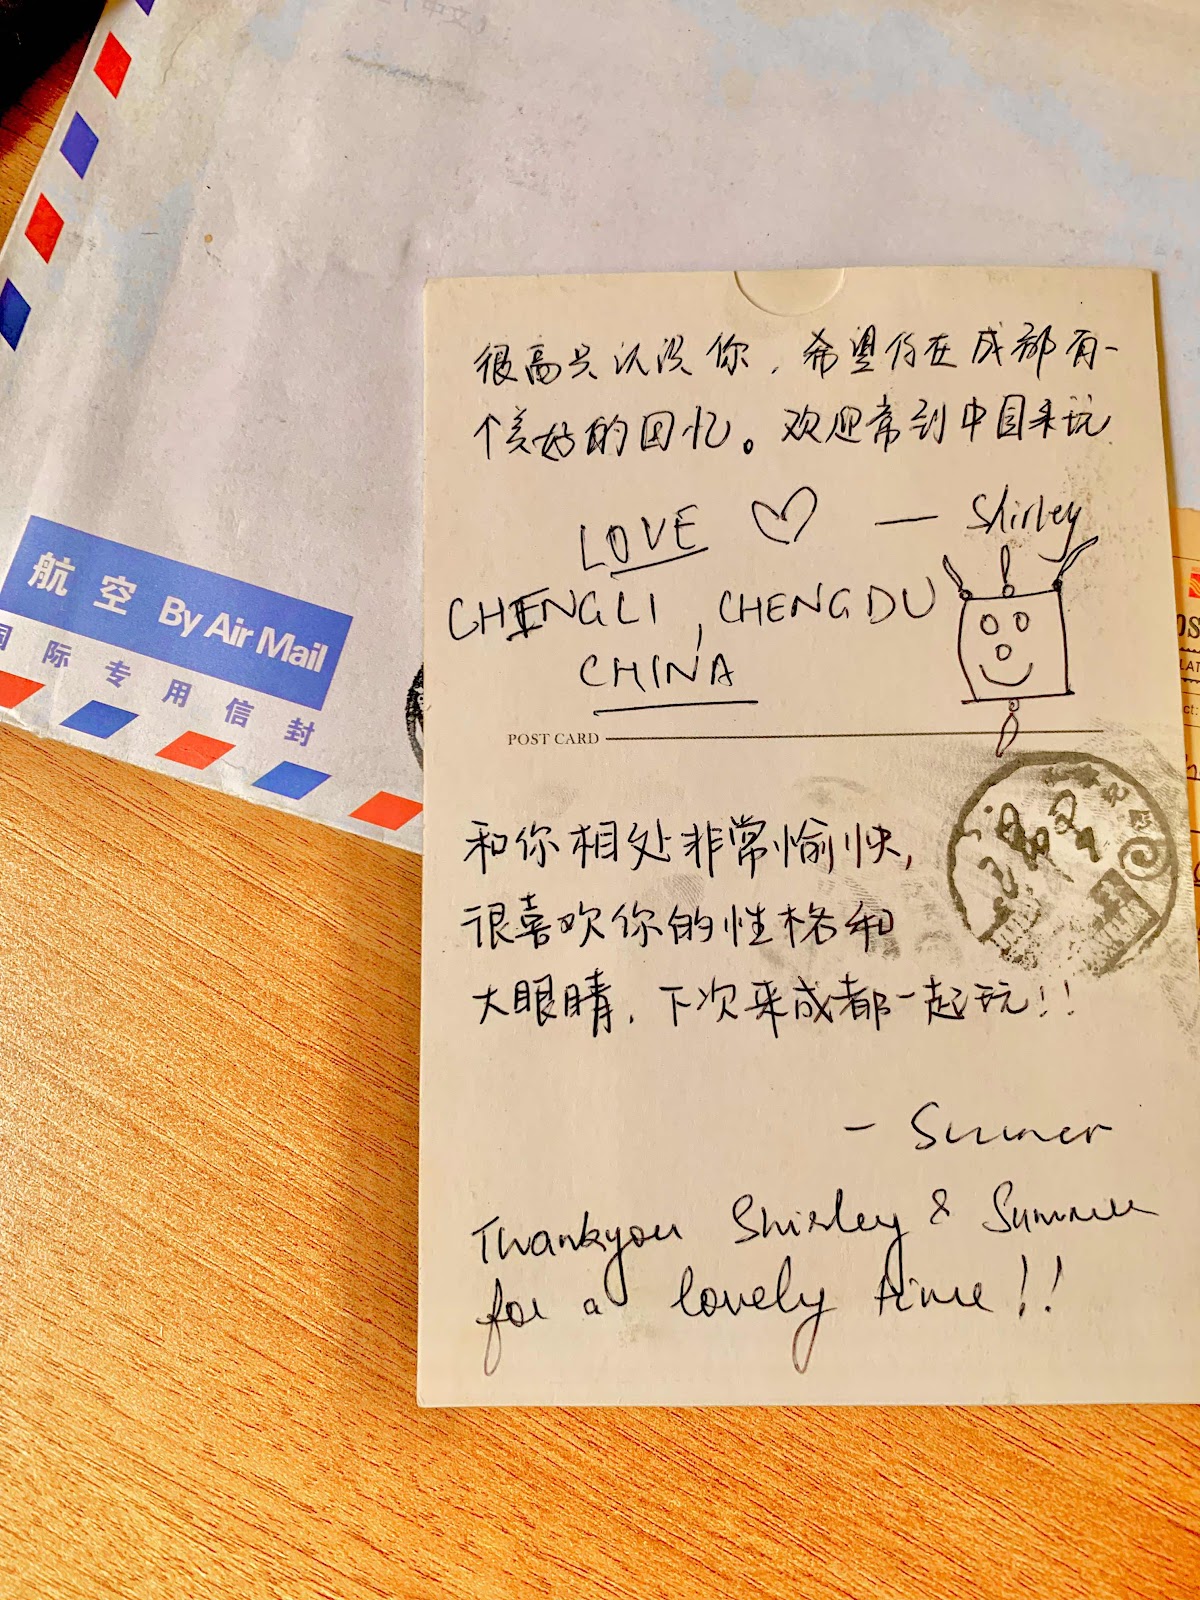 航空 By Air Mail
国际专用信封
很高兴认识你，希望你在成都有一
个美好的回忆。欢迎常到中国来玩
LOVE ♡ — Shirley
CHENGLI, CHENGDU
CHINA
POST CARD
和你相处非常愉快，
很喜欢你的性格和
大眼睛，下次来成都一起玩!!
- Summer
Thankyou Shirley & Summer
for a lovely time!!